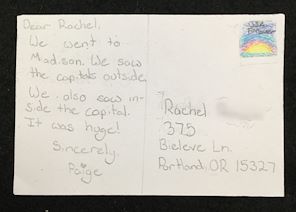 Dear Rachel,
We went to
Madison. We saw
the capitals outside.
We also saw in-
side the capital.
It was huge!
Sincerely,
Paige
USA
Forever
Rachel
375
Bieleve Ln.
Portland, OR 15327